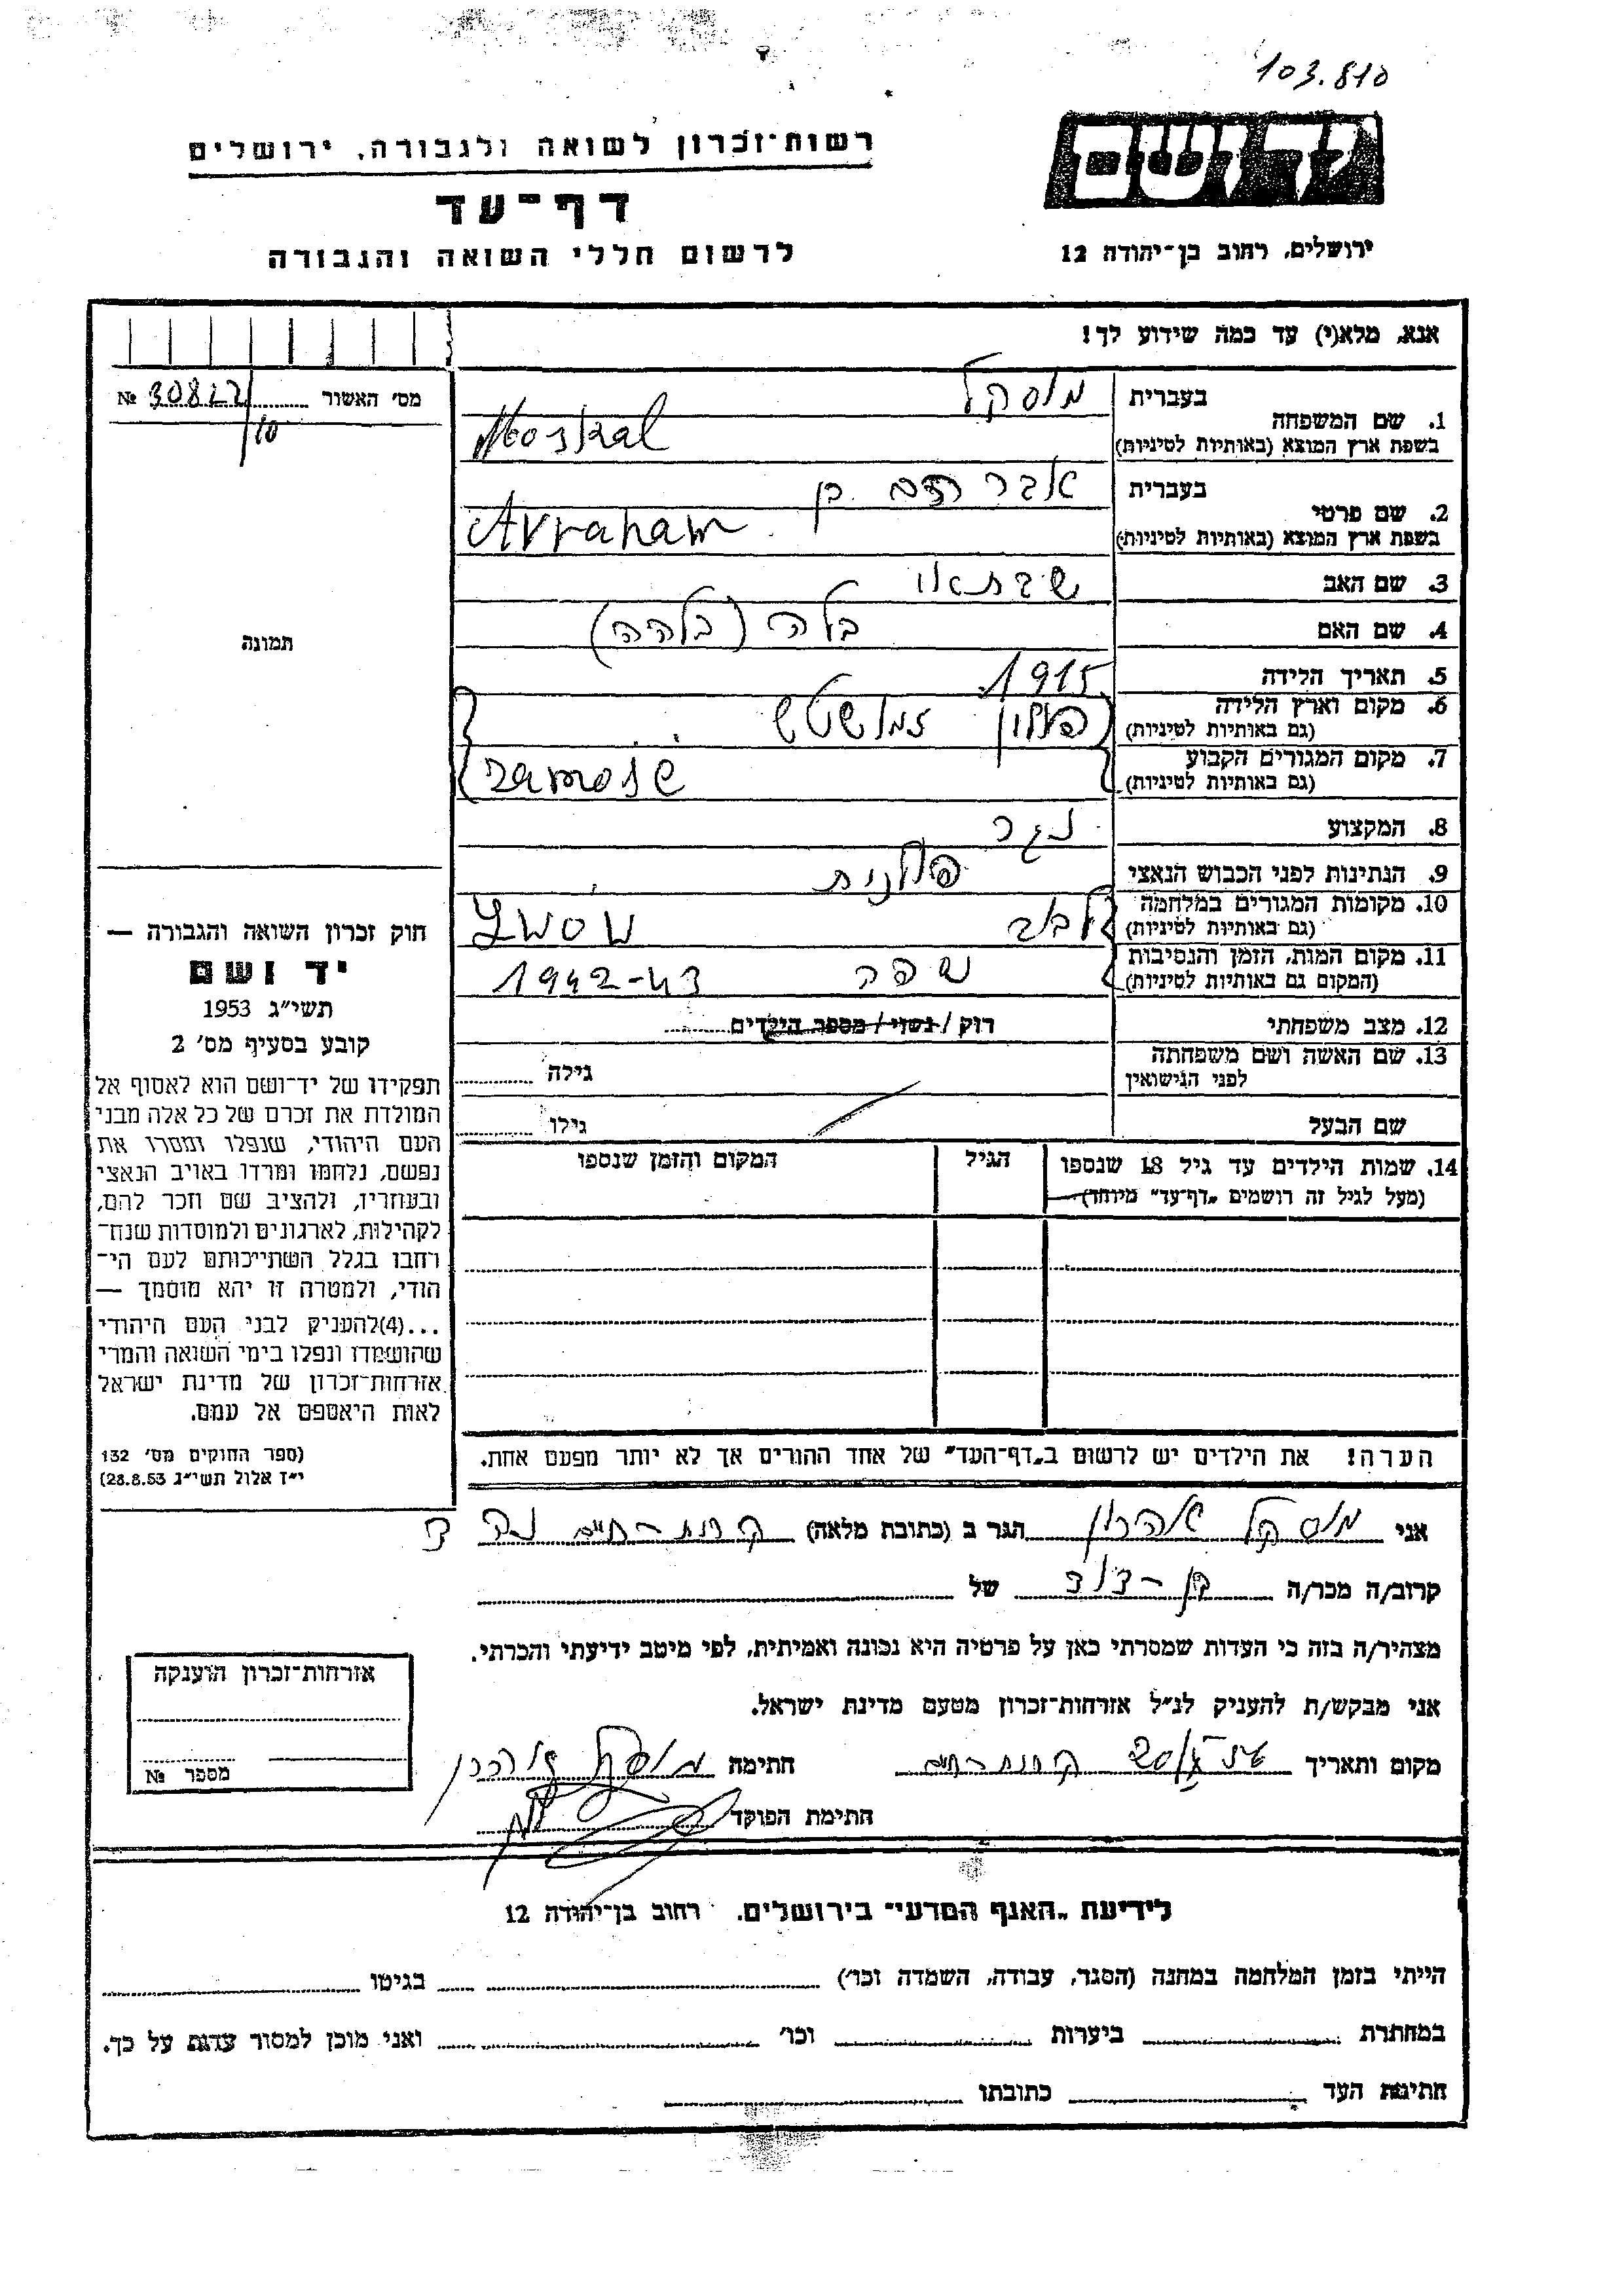 103.810
יד ושם
רשות־זכרון לשואה ולגבורה, ירושלים
דף־עד
לרשום חללי השואה והגבורה
ירושלים, רחוב בן־יהודה 12
אנא, מלא(י) עד כמה שידוע לך!
מס׳ האשור № 30822/10
תמונה
1. שם המשפחה בעברית מוסקל
בשפת ארץ המוצא (באותיות לטיניות) Moskal
2. שם פרטי בעברית אברהם בן
בשפת ארץ המוצא (באותיות לטיניות) Avraham
3. שם האב שבתאי
4. שם האם בלה (בלהה)
5. תאריך הלידה 1915
6. מקום וארץ הלידה
(גם באותיות לטיניות) פולין זמושטש
7. מקום המגורים הקבוע
(גם באותיות לטיניות)
8. המקצוע נגר
9. הנתינות לפני הכבוש הנאצי פולנית
10. מקומות המגורים במלחמה
(גם באותיות לטיניות) לבוב Lwow
11. מקום המות, הזמן והנסיבות
(המקום גם באותיות לטיניות) נספה 1942-43
12. מצב משפחתי רוק / נשוי / מספר הילדים
13. שם האשה ושם משפחתה
לפני הנישואין גילה
שם הבעל גילו
14. שמות הילדים עד גיל 18 שנספו הגיל המקום והזמן שנספו
(מעל לגיל זה רושמים „דף־עד״ מיוחד)
חוק זכרון השואה והגבורה —
יד ושם
תשי״ג 1953
קובע בסעיף מס׳ 2
תפקידו של יד־ושם הוא לאסוף אל
המולדת את זכרם של כל אלה מבני
העם היהודי, שנפלו ומסרו את
נפשם, נלחמו ומרדו באויב הנאצי
ובעוזריו, ולהציב שם וזכר להם,
לקהילות, לארגונים ולמוסדות שנח־
רחבו בגלל השתייכותם לעם הי־
הודי, ולמטרה זו יהא מוסמך —
...(4)להעניק לבני העם היהודי
שהושמדו ונפלו בימי השואה והמרי
אזרחות־זכרון של מדינת ישראל
לאות היאספם אל עמם.
(ספר החוקים מס׳ 132
י״ז אלול תשי״ג 28.8.53)
הערה! את הילדים יש לרשום ב„דף־העד״ של אחד ההורים אך לא יותר מפעם אחת.
אני מוסקל אהרון הגר ב (כתובת מלאה) קרית-חיים
קרוב/ה מכר/ה בן-דוד של
מצהיר/ה בזה כי העדות שמסרתי כאן על פרטיה היא נכונה ואמיתית, לפי מיטב ידיעתי והכרתי.
אני מבקש/ת להעניק לנ״ל אזרחות־זכרון מטעם מדינת ישראל.
מקום ותאריך קרית-חיים חתימה מוסקל אהרון
חתימת הפוקד
אזרחות־זכרון הוענקה
מספר №
לידיעת „האגף המדעי״ בירושלים, רחוב בן־יהודה 12
הייתי בזמן המלחמה במחנה (הסגר, עבודה, השמדה וכו׳) בגיטו
במחתרת ביערות וכו׳ ואני מוכן למסור עדות על כך.
חתימת העד כתובתו